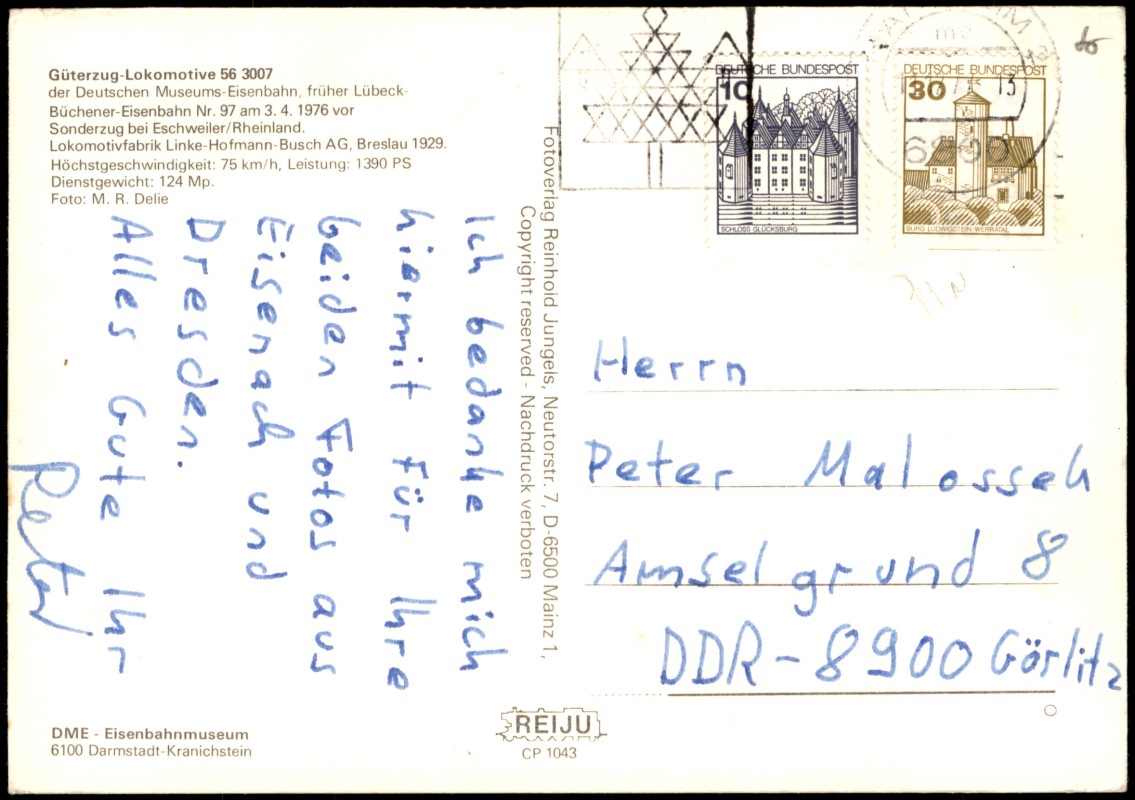 Güterzug-Lokomotive 56 3007
der Deutschen Museums-Eisenbahn, früher Lübeck-
Büchener-Eisenbahn Nr. 97 am 3. 4. 1976 vor
Sonderzug bei Eschweiler/Rheinland.
Lokomotivfabrik Linke-Hofmann-Busch AG, Breslau 1929.
Höchstgeschwindigkeit: 75 km/h, Leistung: 1390 PS
Dienstgewicht: 124 Mp.
Foto: M. R. Delie
Ich bedanke mich
hiermit für Ihre
beiden Fotos aus
Eisenach und
Dresden.
Alles Gute Ihr
Peter
Fotoverlag Reinhold Jungels, Neutorstr. 7, D-6500 Mainz 1,
Copyright reserved - Nachdruck verboten
DEUTSCHE BUNDESPOST
10
SCHLOSS GLÜCKSBURG
DEUTSCHE BUNDESPOST
30
BURG LUDWIGSTEIN-WERRATAL
13
Herrn
Peter Malossek
Amselgrund 8
DDR-8900 Görlitz
DME - Eisenbahnmuseum
6100 Darmstadt-Kranichstein
REIJU
CP 1043